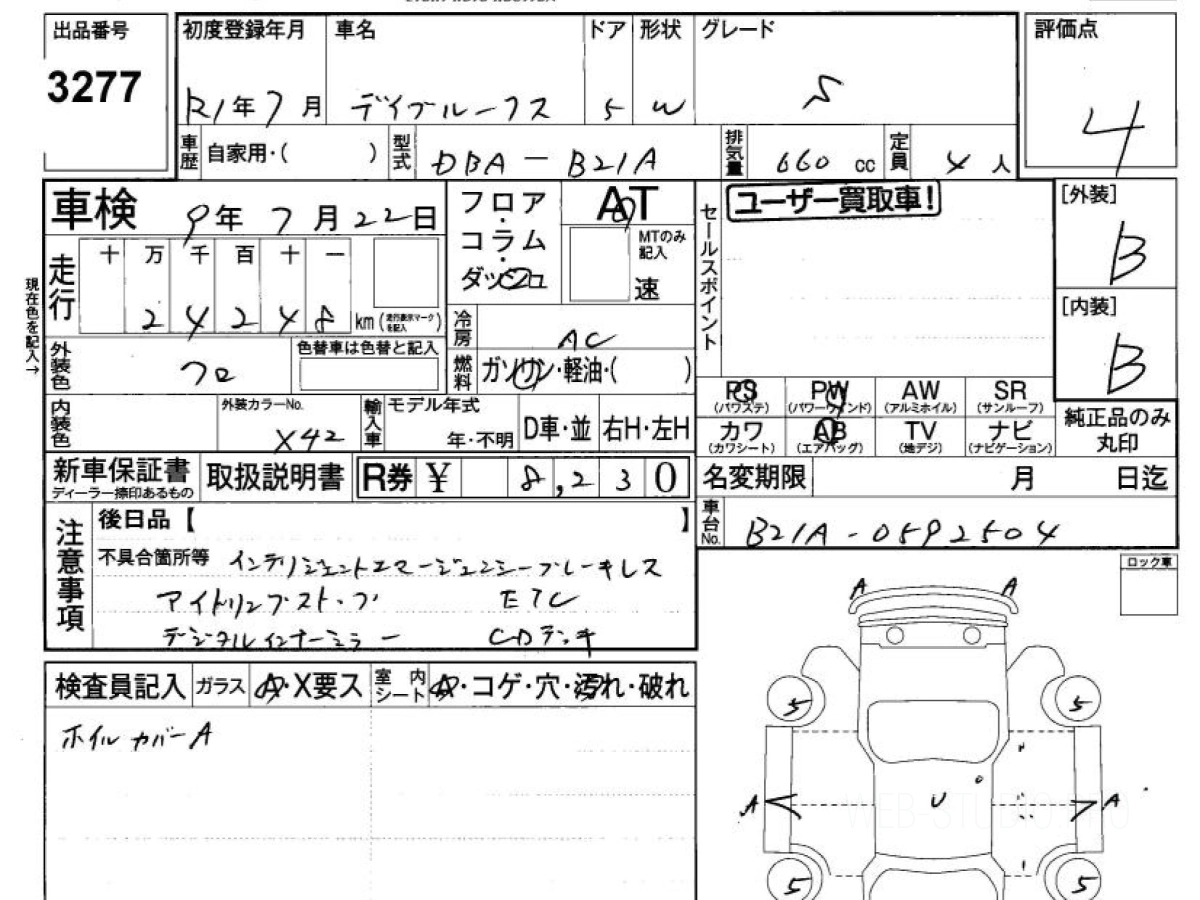 出品番号
3277
初度登録年月 車名 ドア 形状 グレード 評価点
R1年7月 デイズルークス 5 W S 4
車歴 自家用・( ) 型式 DBA－B21A 排気量 660 cc 定員 4人
車検 9年7月22日
フロア・コラム・ダッシュ
AT
MTのみ記入
速
セールスポイント
ユーザー買取車!
[外装]
B
[内装]
B
現在色を記入→
走行 十 万 千 百 十 一
2 4 2 4 8 km (走行表示マークを記入)
冷房 AC
燃料 ガソリン・軽油・( )
外装色 クロ 色替車は色替と記入
PS (パワステ) PW (パワーウィンド) AW (アルミホイル) SR (サンルーフ)
カワ (カワシート) AB (エアバッグ) TV (地デジ) ナビ (ナビゲーション)
純正品のみ丸印
内装色 外装カラーNo. X42
輸入車 モデル年式 年・不明 D車・並 右H・左H
新車保証書 ディーラー捺印あるもの 取扱説明書 R券 ¥ 8,230
名変期限 月 日迄
車台No. B21A-0592504
注意事項
後日品【 】
不具合箇所等 インテリジェントエマージェンシーブレーキレス
アイドリングストップ ETC
デジタルインナーミラー CDデッキ
ロック車
検査員記入 ガラス A・X要ス 室内シート A・コゲ・穴・汚れ・破れ
ホイルカバーA
A A
5 5
A U A
WEB-STUDIO.PRO
5 5